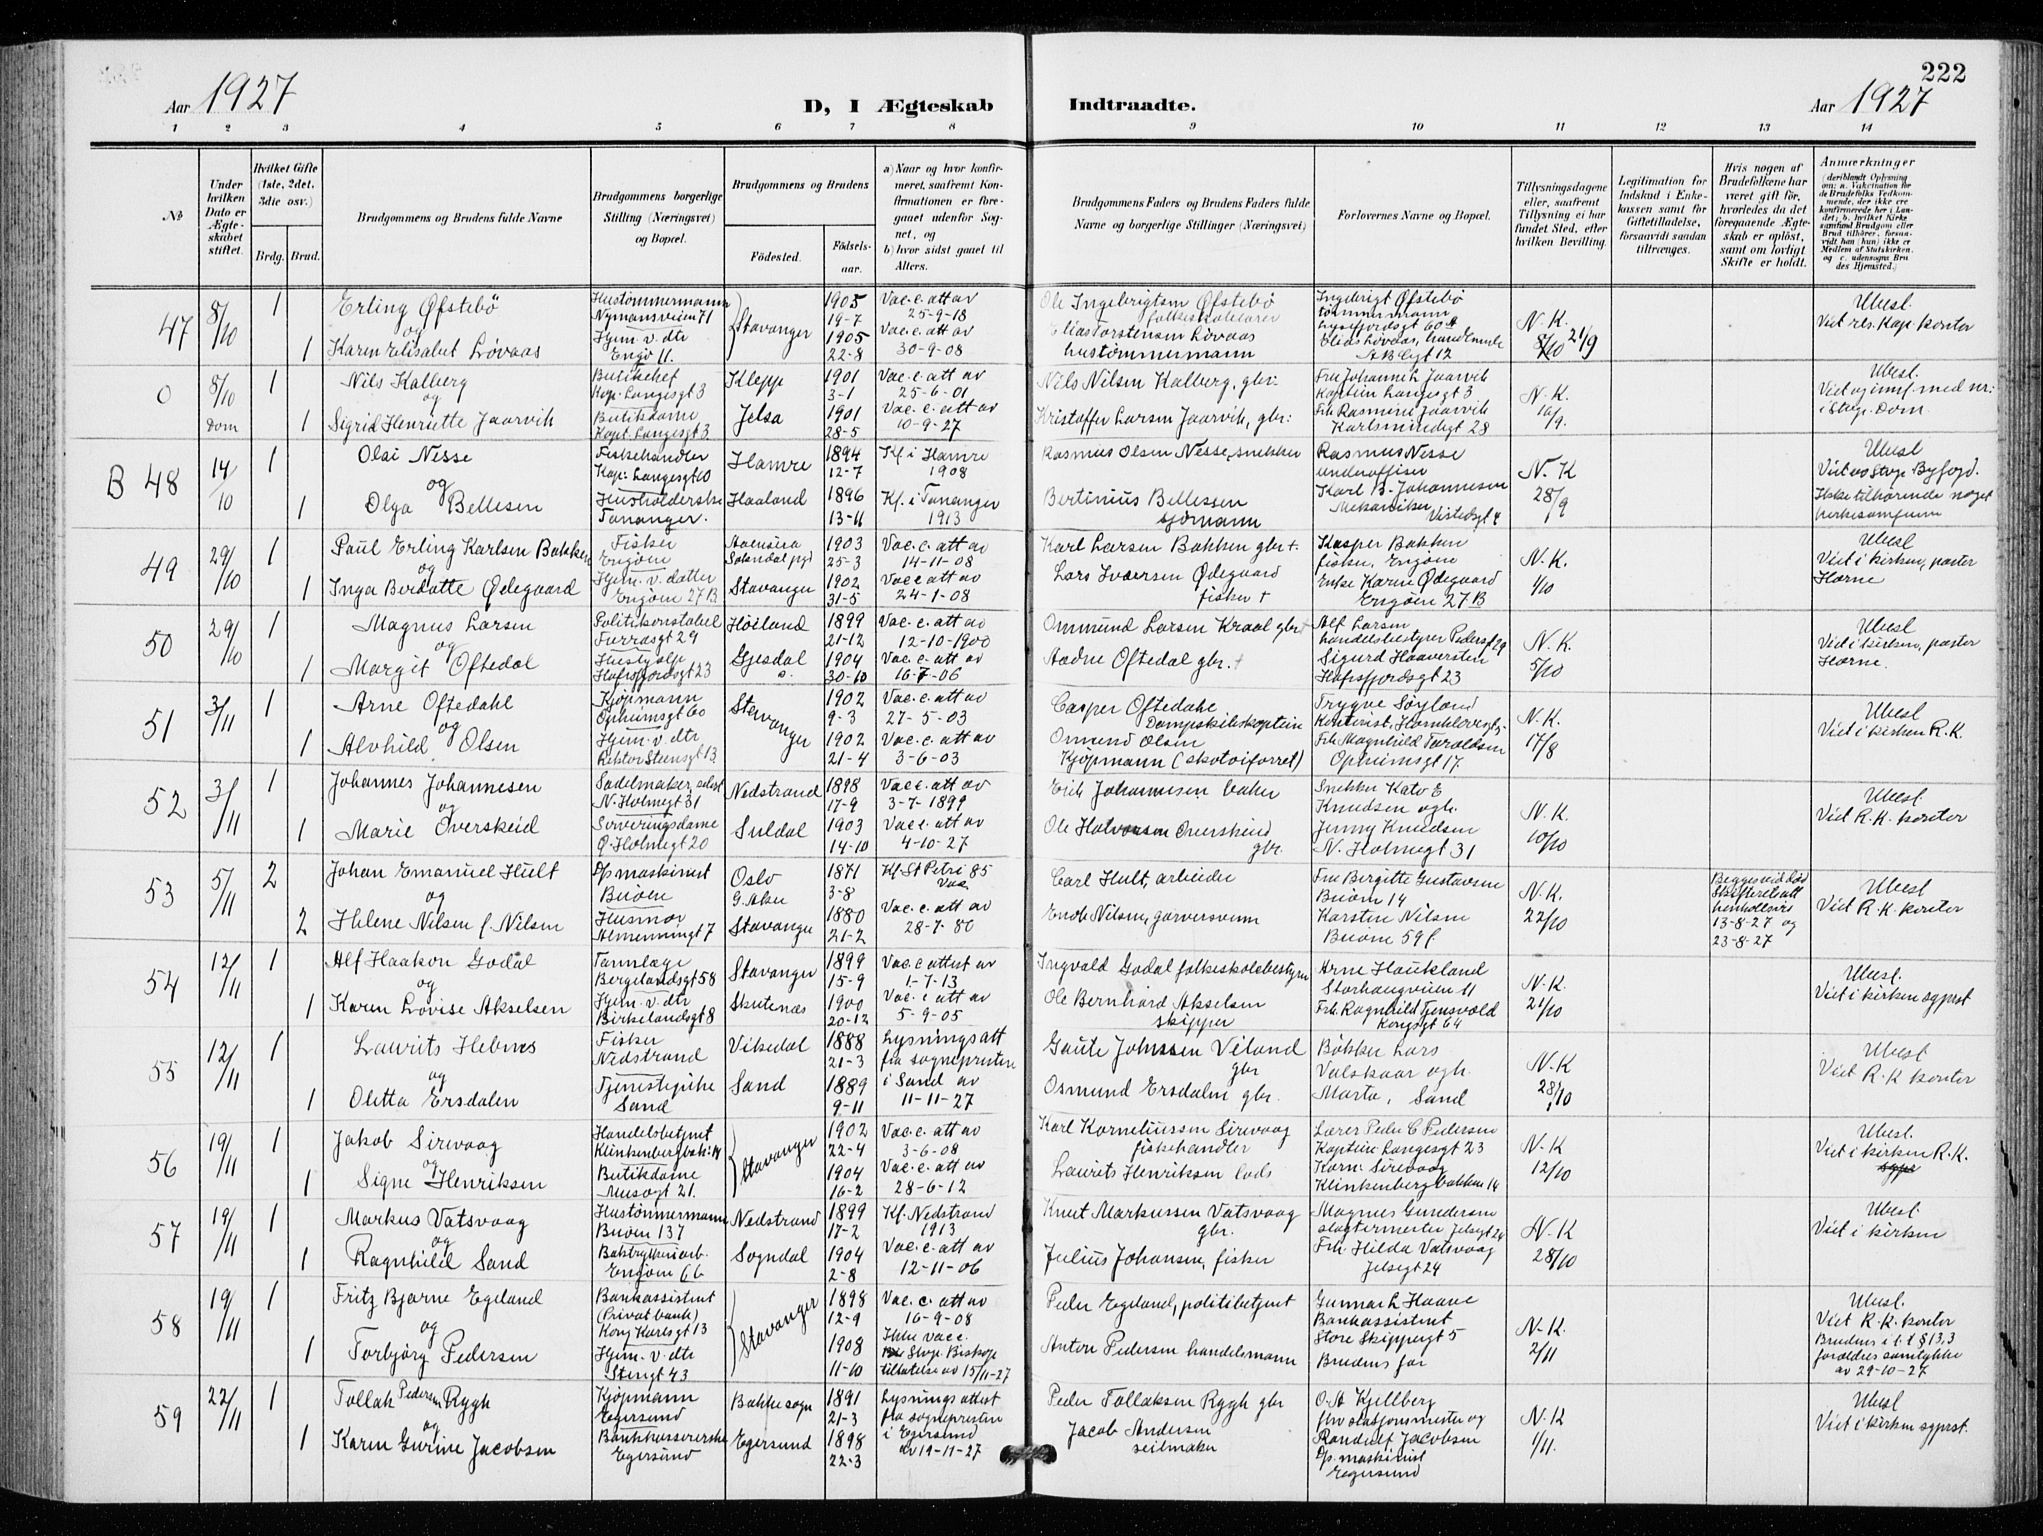 222
Aar 1927
D, I Ægteskab Indtraadte.
Aar 1927
1 2 3 4 5 6 7 8 9 10 11 12 13 14
№
Under hvilken Dato er Ægteskabet stiftet.
Hvilket Gifte (1ste, 2det, 3die osv.)
Brdg. Brud.
Brudgommens og Brudens fulde Navne
Brudgommens borgerlige Stilling (Næringsvei) og Bopæl.
Brudgommens og Brudens
Fødested. Fødselsaar.
a) Naar og hvor konfirmeret, saafremt Konfirmationen er foregaaet udenfor Sognet, og
b) hvor sidst gaaet til Alters.
Brudgommens Faders og Brudens Faders fulde Navne og borgerlige Stillinger (Næringsvei)
Forlovernes Navne og Bopæl.
Tillysningsdagene eller, saafremt Tillysning ei har fundet Sted, efter hvilken Bevilling.
Legitimation for Indskud i Enkekassen samt for Giftetilladelse, forsaavidt saadan tiltrænges.
Hvis nogen af Brudefolkene har været gift før, hvorledes da det foregaaende Ægteskab er opløst, samt om lovligt Skifte er holdt.
Anmærkninger
(deriblandt Oplysning om: a. Vaccination for de Brudefolks Vedkommende, der ikke ere konfirmerede her i Landet; b. hvilket Kirkesamfund Brudgom eller Brud tilhører, forsaavidt han (hun) ikke er Medlem af Statskirken, og c. udensogns Brudes Hjemsted.)
47 8/10 1 Erling Øfstebö Hustömmermann Nymansveien 71 Stavanger 1905 19-7 Vac. c. att av 25-9-18 Ole Ingebrigtsen Øfstebö folkeskolelærer Ingebrigt Øfstebö tömmermann N. K. 8/10 21/9 Ubesl.
og
1 Karen Elisabet Lövaas Hjem. v. dtr Engö 11. 1905 22-8 Vac. c. att av 30-9-08 Elias Torstensen Lövaas hustömmermann Vid res. Kap. kontor
0 8/10 dom 1 Nils Kalberg Butikchef Kap. Langesgt 3 Klepp 1901 3-1 Vac. c. att av 25-6-01 Nils Nilsen Kalberg, gbr. Fru Johanne L Jaarvik Kaptein Langesgt 3 N. K. 10/9. Ubesl.
og
1 Sigrid Henriette Jaarvik Butikdame Kapt. Langesgt 3 Jelsa 1901 28-5 Vac. c. att av 10-9-27 Kristoffer Larsen Jaarvik, gbr: Frk Rasmine Jaarvik Karlsminnegt 28 i Stvgr. Dom.
B 48 14/10 1 Olai Nesse Fiskehandler Kap. Langesgt 10 Hamre 1894 12-7 Kf. i Hamre 1908 Rasmus Olsen Nesse, snekker Rasmus Nesse underoffiser N. K 28/9 Ubesl
og
1 Olga Bellesen Husholderske Tananger. Haaland 1896 13-11 Kf. i Tananger 1913 Bertinius Bellessen sjömann Karl B. Johannesen Mekaniker Vistedgt 4 Ikke tilhörende noget kirkesamfunn
49 29/10 1 Paul Erling Karlsen Bakken Fisker Engöen 1903 25-3 Vac. c. att av 14-11-08 Karl Larsen Bakken gbr + Kasper Bakken fisker, Engöen N. K. 1/10 Ubesl
og
1 Inga Berdatte Ødegaard Hjem. v. datter Engöen 27 B Stavanger 1902 31-5 Vac c att av 24-1-08 Lars Iversen Ødegaard fisker + Enke Karen Ødegaard Engöen 27 B Viet i kirken, pastor Horne
50 29/10 1 Magnus Larsen Politikonstabel Furrasgt 29 Höiland 1899 21-12 Vac. c. att av 12-10-1900 Ommund Larsen Kraal gbr + Alf Larsen handelsbestyrer Pedersgt 29 N. K. 5/10 Ubesl
og
1 Margit Oftedal Hushjelp Hafrsfjordsgt 23 Gjesdal 1904 30-10 Vac. c. att av 16-7-06 Aadne Oftedal gbr. + Sigurd Haaversten Hafrsfjordsgt 23 Viet i kirken, pastor Horne.
51 3/11 1 Arne Oftedahl Kjöpmann Ophiumsgt 60 Stavanger 1902 9-3 Vac. c. att av 27-5-03 Casper Oftedahl Dampskibskaptein Trygve Söyland N. K. 17/8 Ubesl
og
1 Alvhild Olsen Hjem. v. dtr Rektor Steensgt 13 1902 21-4 Vac. c. att av 3-6-03 Ommund Olsen Kjöpmann (skotöiforret) Frk Magnhild Taraldsen Ophiumsgt 17. Viet i kirken R. K.
52 3/11 1 Johannes Johannesen Sadelmaker, N. Holmegt 31 Nedstrand 1898 17-9 Vac c. att av 3-7-1899 Erik Johannesen baker Snekker Kato E Knudsen ogh. N. K. 10/10 Ubesl.
og
1 Marie Överskeid Serveringsdame Ö. Holmegt 20 Suldal 1903 14-10 Vac c. att av 4-10-27 Ole Halvorsen Överskeid gbr. Jenny Knudsen N. Holmegt 31 Viet R. K. kontor
53 5/11 2 Johan Emanuel Hult Dpmaskinist Buöen Oslo G. Aker 1871 3-8 Kf St Petri 85 Vac Carl Hult, arbeider Fru Birgitte Gustavsen Buöen 14 N. K. 22/10 Ubesl
og
2 Helene Nilsen f. Nilsen Husmor Almenningt 7 Stavanger 1880 21-2 Vac. c. att av 28-7-80 Enok Nilsen, garversvenn Karsten Nilsen Buöen 59 f. 13-8-27 og 23-8-27 Viet R. K. kontor
54 12/11 1 Alf Haakon Godal Tannlæge Bergelandsgt 58 Stavanger 1899 15-9 Vac. c attest av 1-7-13 Ingvald Godal folkeskolebestyrer Arne Haukland Storhaugveien 11 N. K. 21/10 Ubesl.
og
1 Karen Lovise Akselsen Hjem. v. dtr Birkelandsgt 8 Skutenæs 1900 20-12 Vac. c att av 5-9-05 Ole Bernhard Akselsen skipper Frk. Ragnhild Tjensvold Kongsgt 64 Viet i kirken sgprst.
55 12/11 1 Laurits Hebnes Fisker Nedstrand Vikedal 1888 21-3 Lysningsatt fra sognepresten Gaute Johnssen Viland gbr Bökker Lars Valskaar ogh. N. K 28/10 Ubesl
og
1 Oletta Ersdalen Tjenestepike Sand Sand 1889 9-11 i Sand av 11-11-27 Osmund Ersdalen gbr. Marta, Sand Viet R. K kontor
56 19/11 1 Jakob Sirevaag Handelsbetjent Klinkenbergbak: 14 Stavanger 1902 22-4 Vac. c. att av 3-6-08 Karl Korneliussen Sirevaag fiskehandler Lærer Peder C Pedersen Kaptein Langesgt 23 N. K 12/10 Ubesl.
og
1 Signe Henriksen Butikdame Musegt 21. 1904 16-2 Vac. c. att av 28-6-12 Laurits Henriksen lods Korn. Sirevaag Klinkenbergbakken 14 Viet i kirken R. K.
57 19/11 1 Markus Vatsvaag Hustömmermann Buöen 137 Nedstrand 1899 17-2 Kf. Nedstrand 1913 Knut Markussen Vatsvaag gbr. Magnus Gundersen slagtermester Jelsegt 24 N. K 28/10 Ubesl
og
1 Ragnhild Sand Boktrykkeriarb. Engöen 66 Sogndal 1904 2-8 Vac. c. att av 12-11-06 Julius Johansen, fisker Frk Hilda Vatsvaag Jelsegt 24 Viet i kirken
58 19/11 1 Fritz Bjarne Egeland Bankassistent (Privatbank) Kong Karlsgt 13 Stavanger 1898 12-9 Vac. c. att av 16-9-08 Peder Egeland, politibetjent Gunnar L Haave Bankassistent Store Skippergt 5 N. K. 2/11 Ubesl.
og
1 Torbjörg Pedersen Hjem. v. dtr Stengt 43 1908 11-10 Ikke vacc. Stvgr. Biskop tillatelse av 15/11-27 Anton Pedersen handelsmann Brudens far Viet R. K. kontor Brudens i. f. l §13,3 forældres samtykke av 29-10-27
59 22/11 1 Tollak Pedersen Rygh Kjöpmann Egersund Bakke sogn 1891 21-3 Lysnings attest fra sognepresten Peder Tollaksen Rygh gbr O. A Kjellberg fhv stasjonsmester og N. K 1/11. Ubesl
og
1 Karen Gurine Jacobsen Bankkassererske Egersund Egersund 1898 22-3 i Egersund av 19-11-27 Jacob Andersen seilmaker Randulf Jacobsen Dp. maskinist Egersund Viet i kirken sgprst.